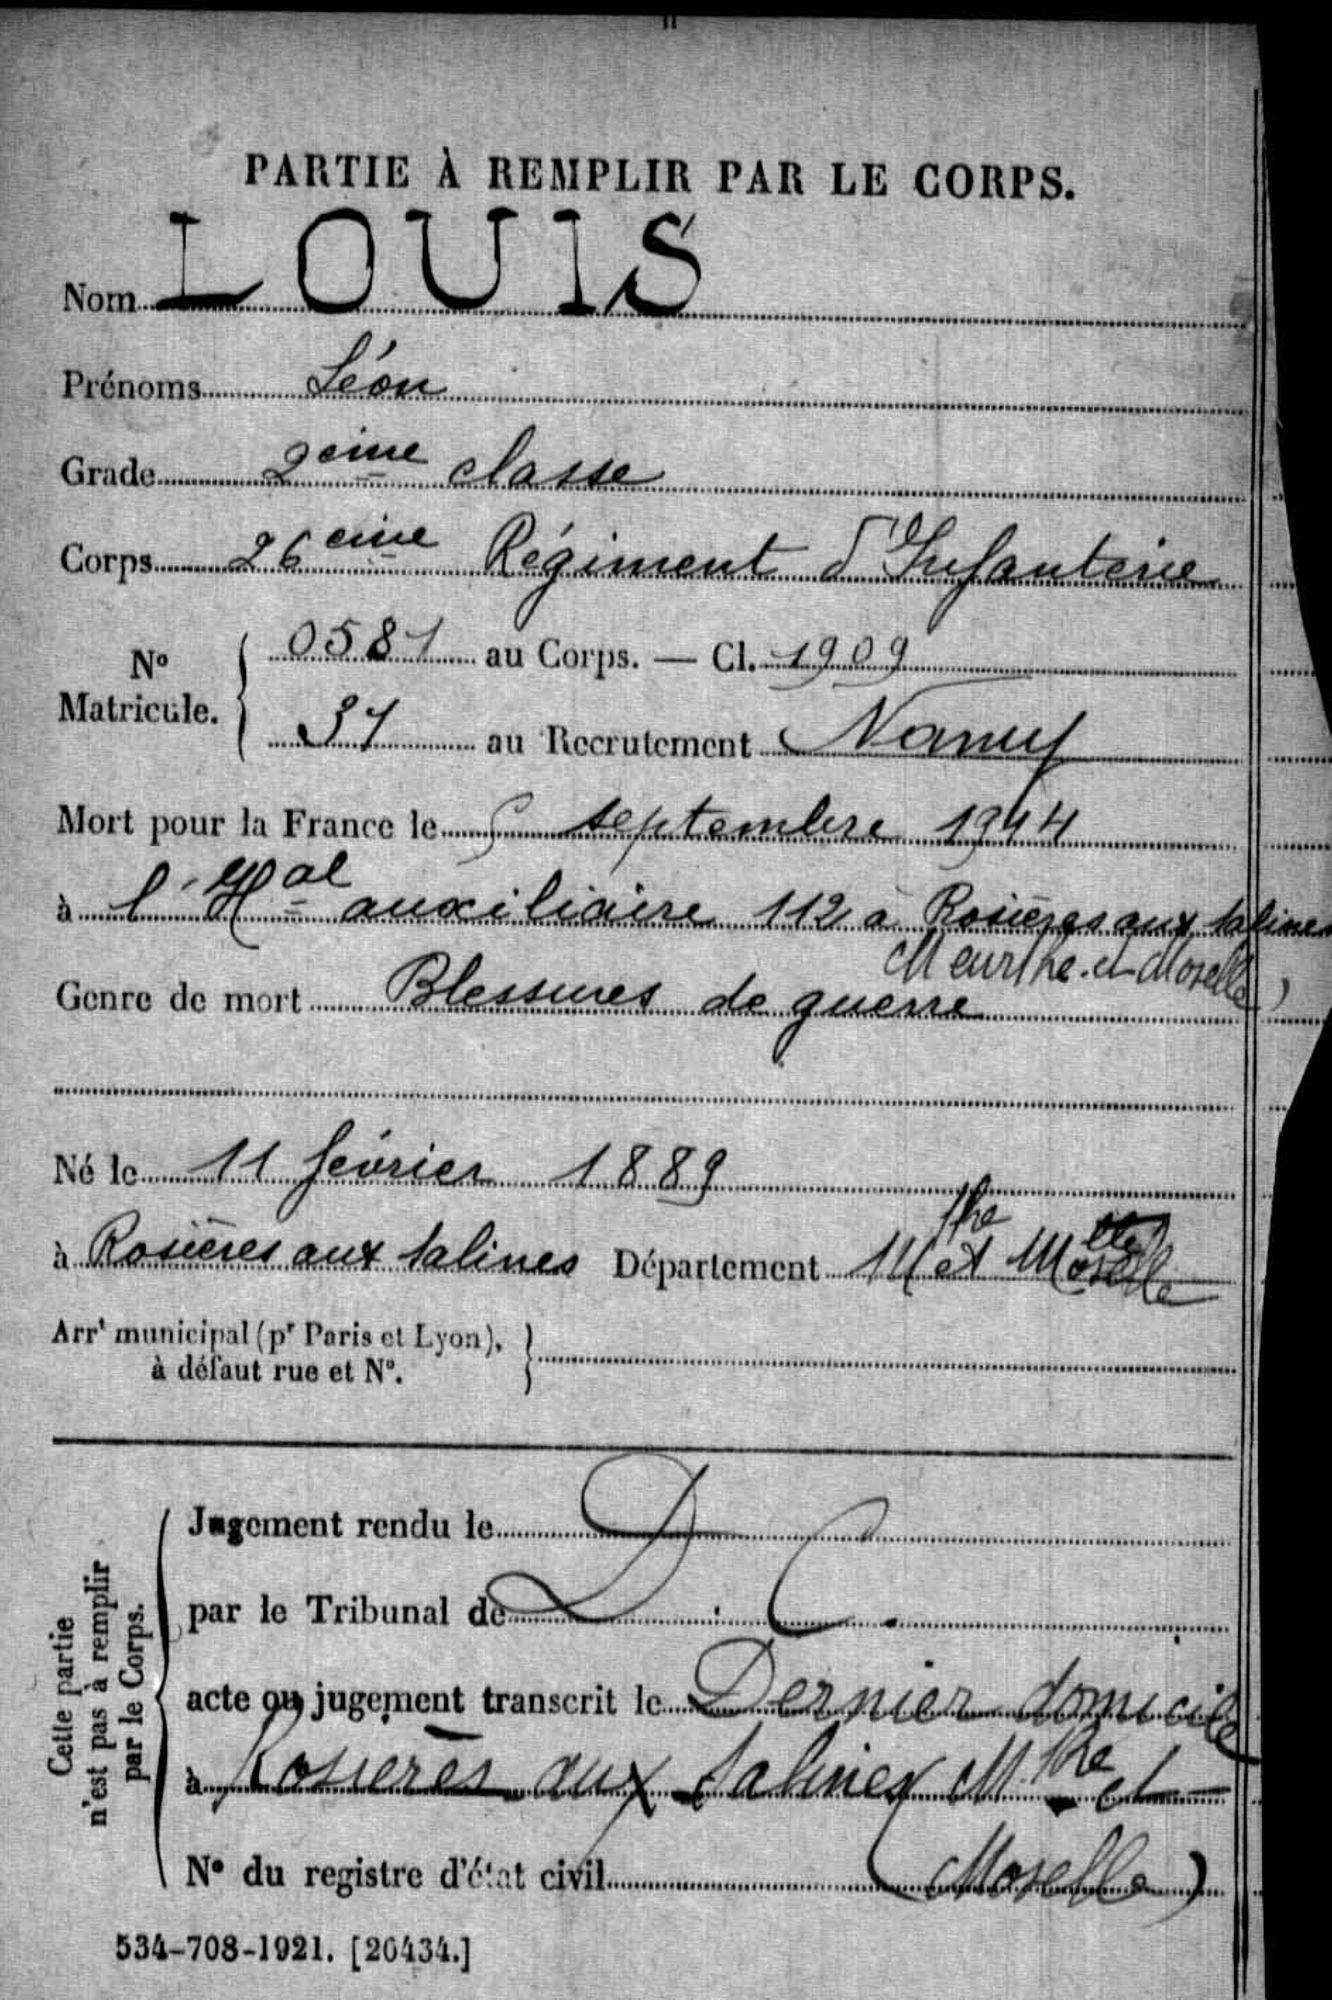 PARTIE À REMPLIR PAR LE CORPS.
Nom LOUIS
Prénoms Léon
Grade 2eme classe
Corps 26eme Régiment d'Infanterie
N° Matricule. 0581 au Corps. — Cl. 1909
37 au Recrutement Nancy
Mort pour la France le 5 septembre 1914
à l'Hal auxiliaire 112 à Rosières aux Salines
Meurthe-et-Moselle)
Genre de mort Blessures de guerre
Né le 11 février 1889
à Rosières aux Salines Département Mthe et Moselle
Arrt municipal (pr Paris et Lyon),
à défaut rue et N°.
Cette partie
n'est pas à remplir
par le Corps.
Jugement rendu le
par le Tribunal de D. C.
acte ou jugement transcrit le Dernier domicile
à Rosières aux Salines Mthe et
N° du registre d'état civil (Moselle)
534-708-1921. [20434.]